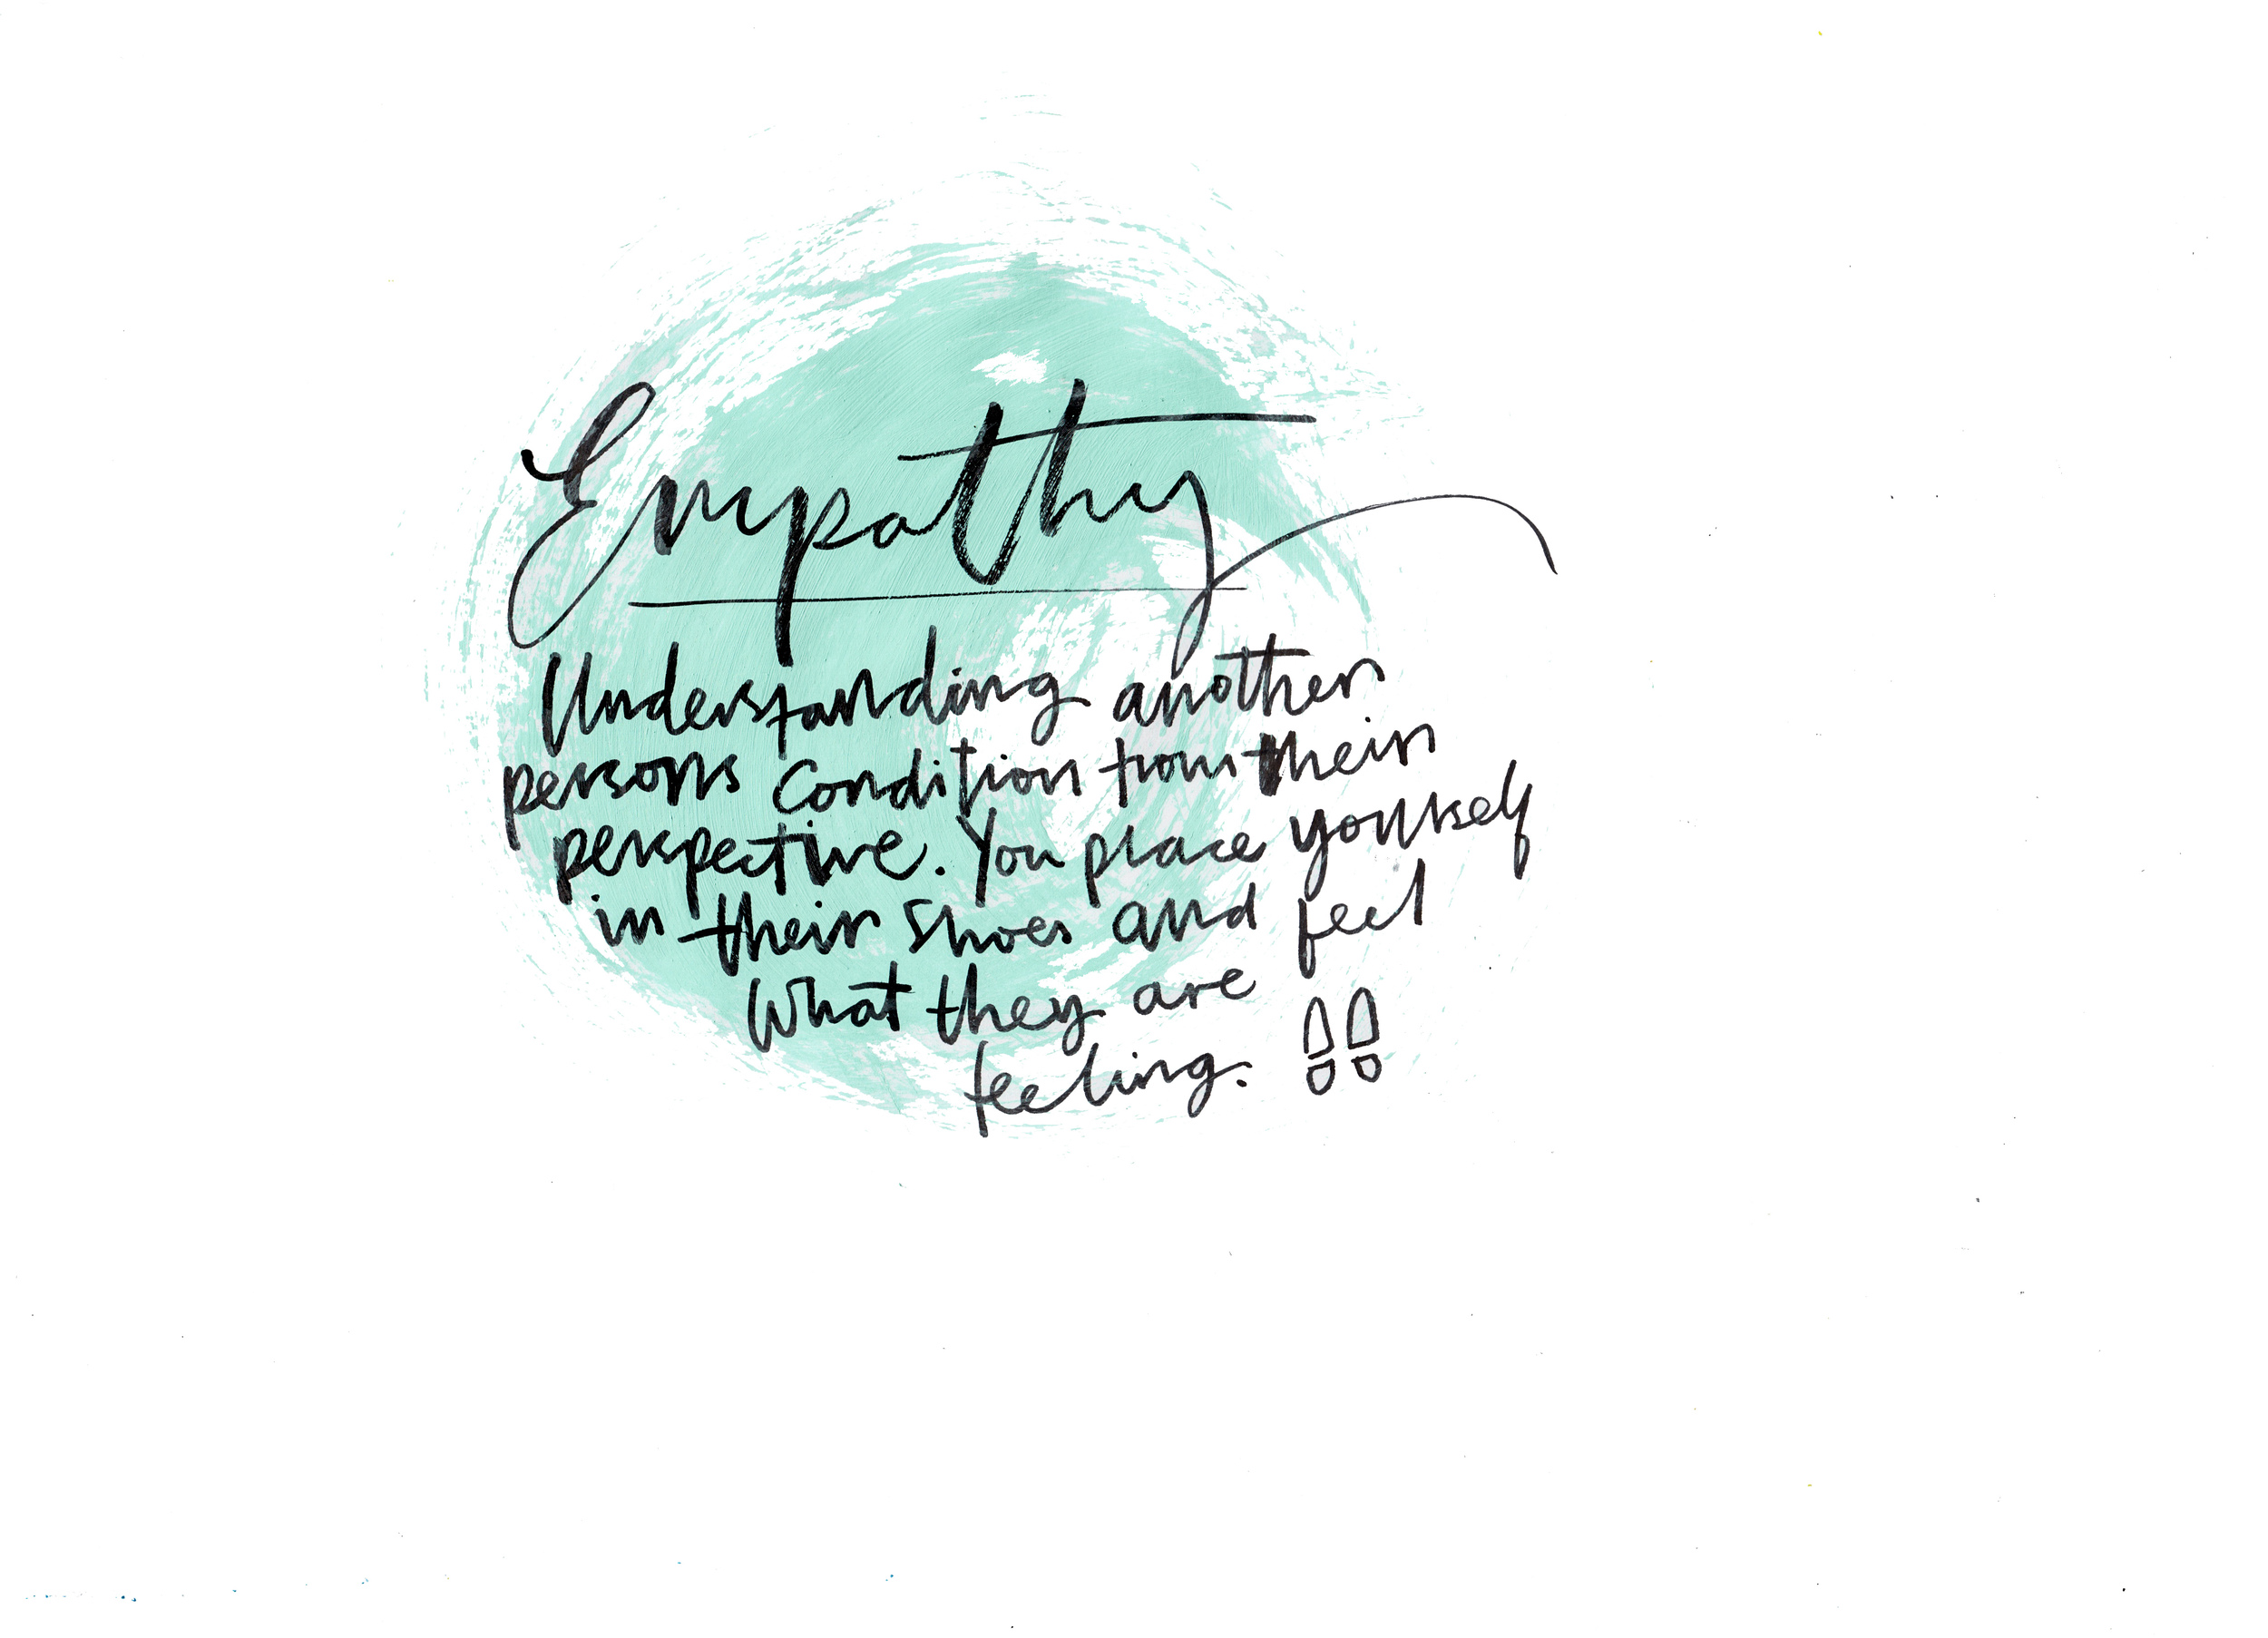 Empathy
Understanding another
persons condition from their
perspective. You place yourself
in their shoes and feel
What they are
feeling.